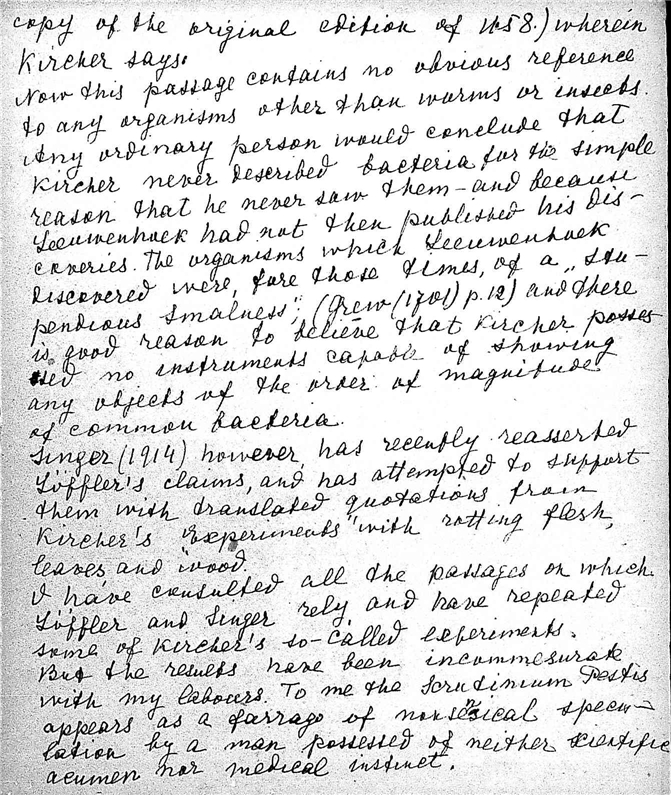 copy of the original edition of 1658.) wherein
Kircher says:
Now this passage contains no obvious reference
to any organisms other than worms or insects.
Any ordinary person would conclude that
Kircher never described bacteria for the simple
reason that he never saw them – and because
Leeuwenhoek had not then published his dis-
coveries. The organisms which Leeuwenhoek
discovered were, fore those times, of a „stu-
pendious smalness", (Grew (1701) p. 12) and there
is good reason to believe that Kircher posses
sed no instruments capable of showing
any objects of the order of magnitude
of common bacteria.
Singer (1914) however, has recently reasserted
Löffler's claims, and has attempted to support
them with translated quotations from
Kircher's "Experiments" with rotting flesh,
leaves and wood.
I have consulted all the passages on which
Löffler and Singer rely and have repeated
some of Kircher's so-called experiments.
But the results have been incommesurate
with my labours. To me the Scrutinium Pestis
appears as a farrago of nonsensical specu-
lation by a man possessed of neither scientific
acumen nor medical instinct.